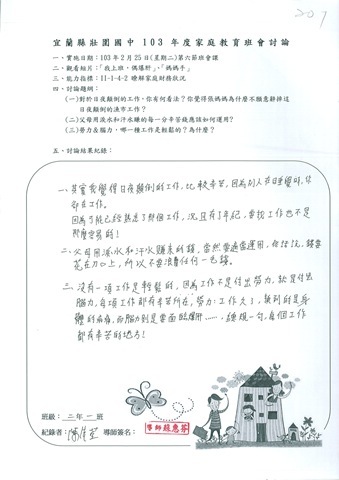 207
宜蘭縣壯圍國中 103 年度家庭教育班會討論
一、實施日期：103年2月25日(星期二)第六節班會課
二、觀看短片：「我上班，偶爆肝」、「媽媽手」
三、能力指標：11-1-4-2 瞭解家庭財務狀況
四、討論題綱：
(一)對於日夜顛倒的工作，你有何看法？你覺得張媽媽為什麼不願意辭掉這
日夜顛倒的漁市工作？
(二)父母用流水和汗水賺的每一分辛苦錢應該如何運用？
(三)勞力＆腦力，哪一種工作是輕鬆的？為什麼？
五、討論結果紀錄：
一、其實我覺得日夜顛倒的工作，比較辛苦，因為別人在睡覺時，你
卻在工作。
因為可能已經熟悉了那個工作，況且有了年紀，要找工作也不是
那麼容易的！
二、父母用流水和汗水賺來的錢，當然要適當運用，俗話說，錢要
花在刀口上，所以不要浪費任何一毛錢。
三、沒有一項工作是輕鬆的，因為工作不是付出勞力，就是付出
腦力，每項工作都有辛苦所在，勞力：工作久了，換到的是身
體的病痛，而腦力則是要面臨爆肝……，總規一句，每個工作
都有辛苦的地方！
班級：二年一班
紀錄者：
導師簽名：
導師蘇惠芬